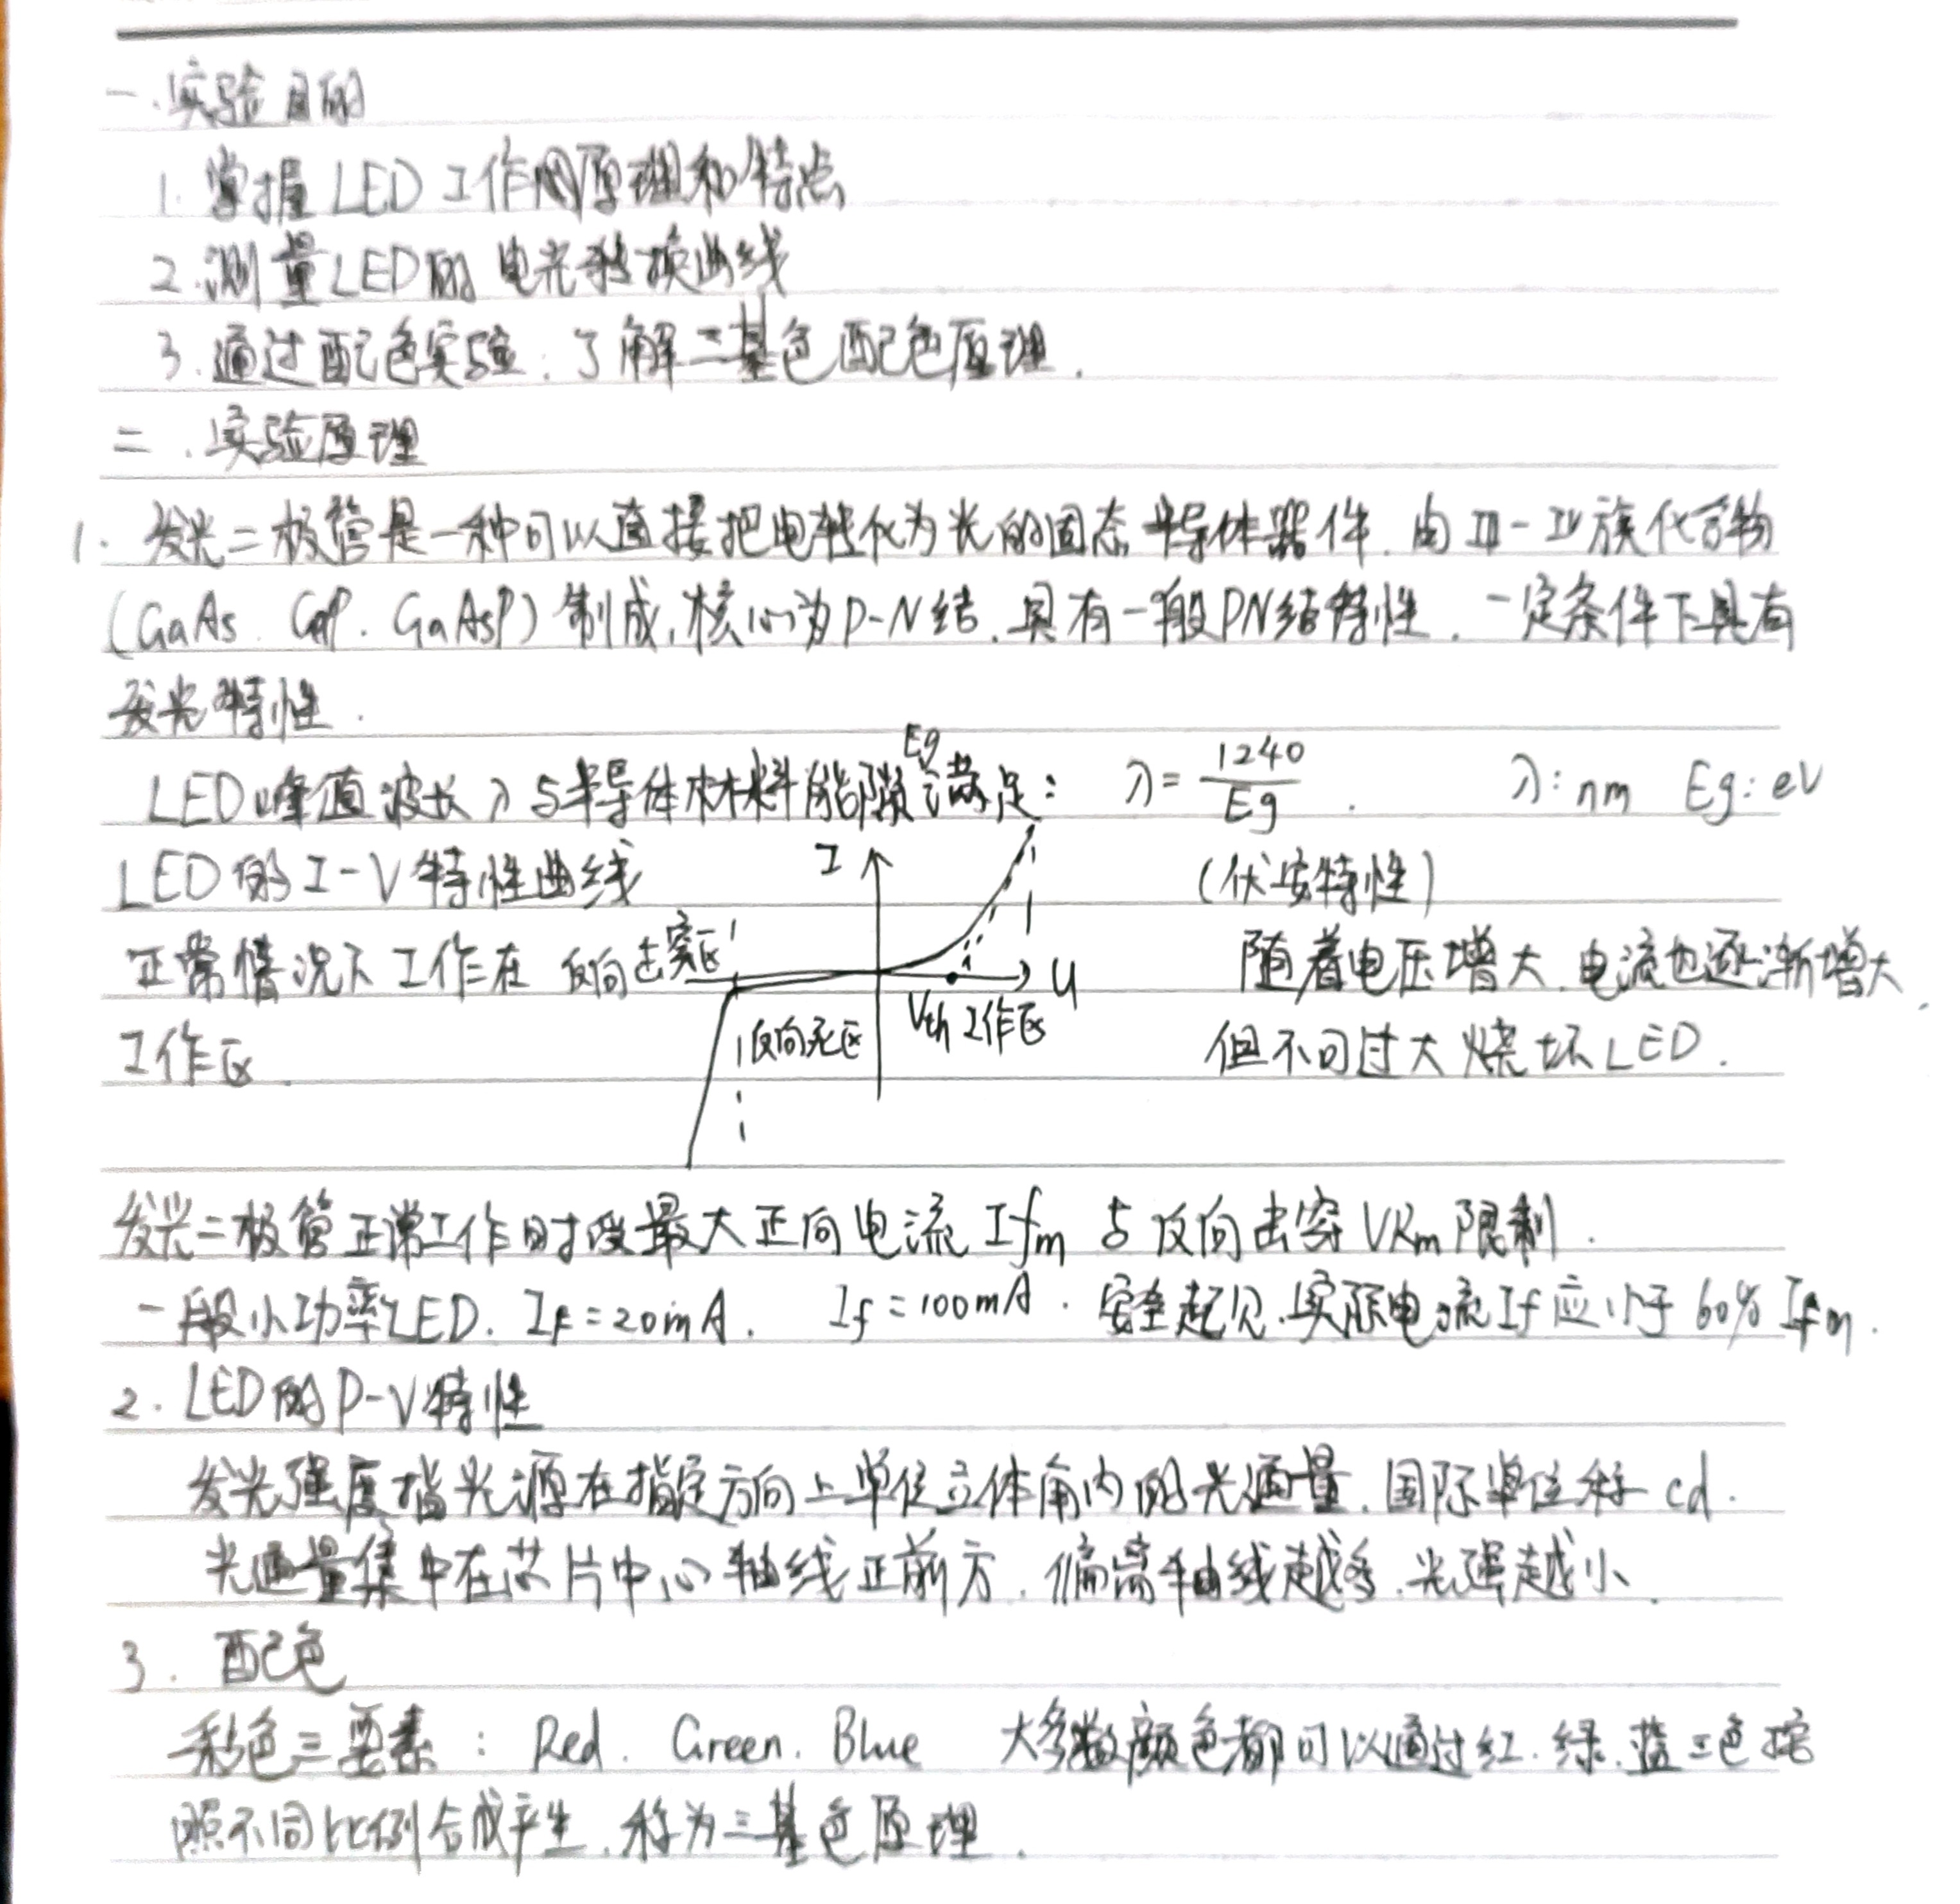 一.实验目的
1. 掌握LED工作的原理和特点
2.测量LED的 电光转换曲线
3.通过配色实验.了解三基色配色原理.
二.实验原理
1. 发光二极管是一种可以直接把电转化为光的固态半导体器件.由III-IV族化合物
(GaAs. GaP. GaAsP)制成,核心为P-N结.具有一般PN结特性.一定条件下具有
发光特性.
Eg
LED峰值波长λ与半导体材料能隙满足: λ=1240/Eg. λ:nm Eg:eV
LED的I-V特性曲线 I (伏安特性)
正常情况下工作在 反向击穿区 U 随着电压增大.电流也逐渐增大,
工作区. 反向死区 Vth 工作区 但不可过大烧坏LED.
发光二极管正常工作时受最大正向电流Ifm与反向击穿VRm限制.
一般小功率LED. IF=20mA. If=100mA. 安全起见.实际电流If应小于60% Ifm.
2. LED的P-V特性
发光强度指光源在指定方向上单位立体角内的光通量.国际单位称cd.
光通量集中在芯片中心轴线正前方.偏离轴线越多.光强越小.
3. 配色
彩色三要素: Red. Green. Blue 大多数颜色都可以通过红.绿.蓝三色按
照不同比例合成产生.称为三基色原理.